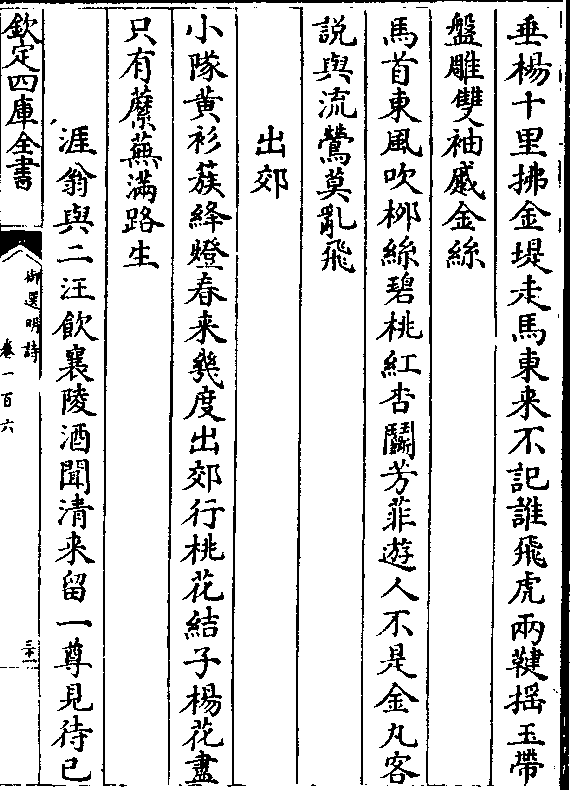 垂楊十里拂金堤走馬東来不記誰飛虎兩鞬揺玉帶
盤雕雙袖蹙金絲
馬首東風吹栁絲碧桃紅杏鬭芳菲遊人不是金丸客
説與流鶯莫亂飛
出郊
小隊黄衫簇絳燈春来幾度出郊行桃花結子楊花盡
只有蘼蕪滿路生
涯翁與二汪飲襄陵酒聞清来留一尊見待已
欽定四庫全書
御選明詩
卷一百六